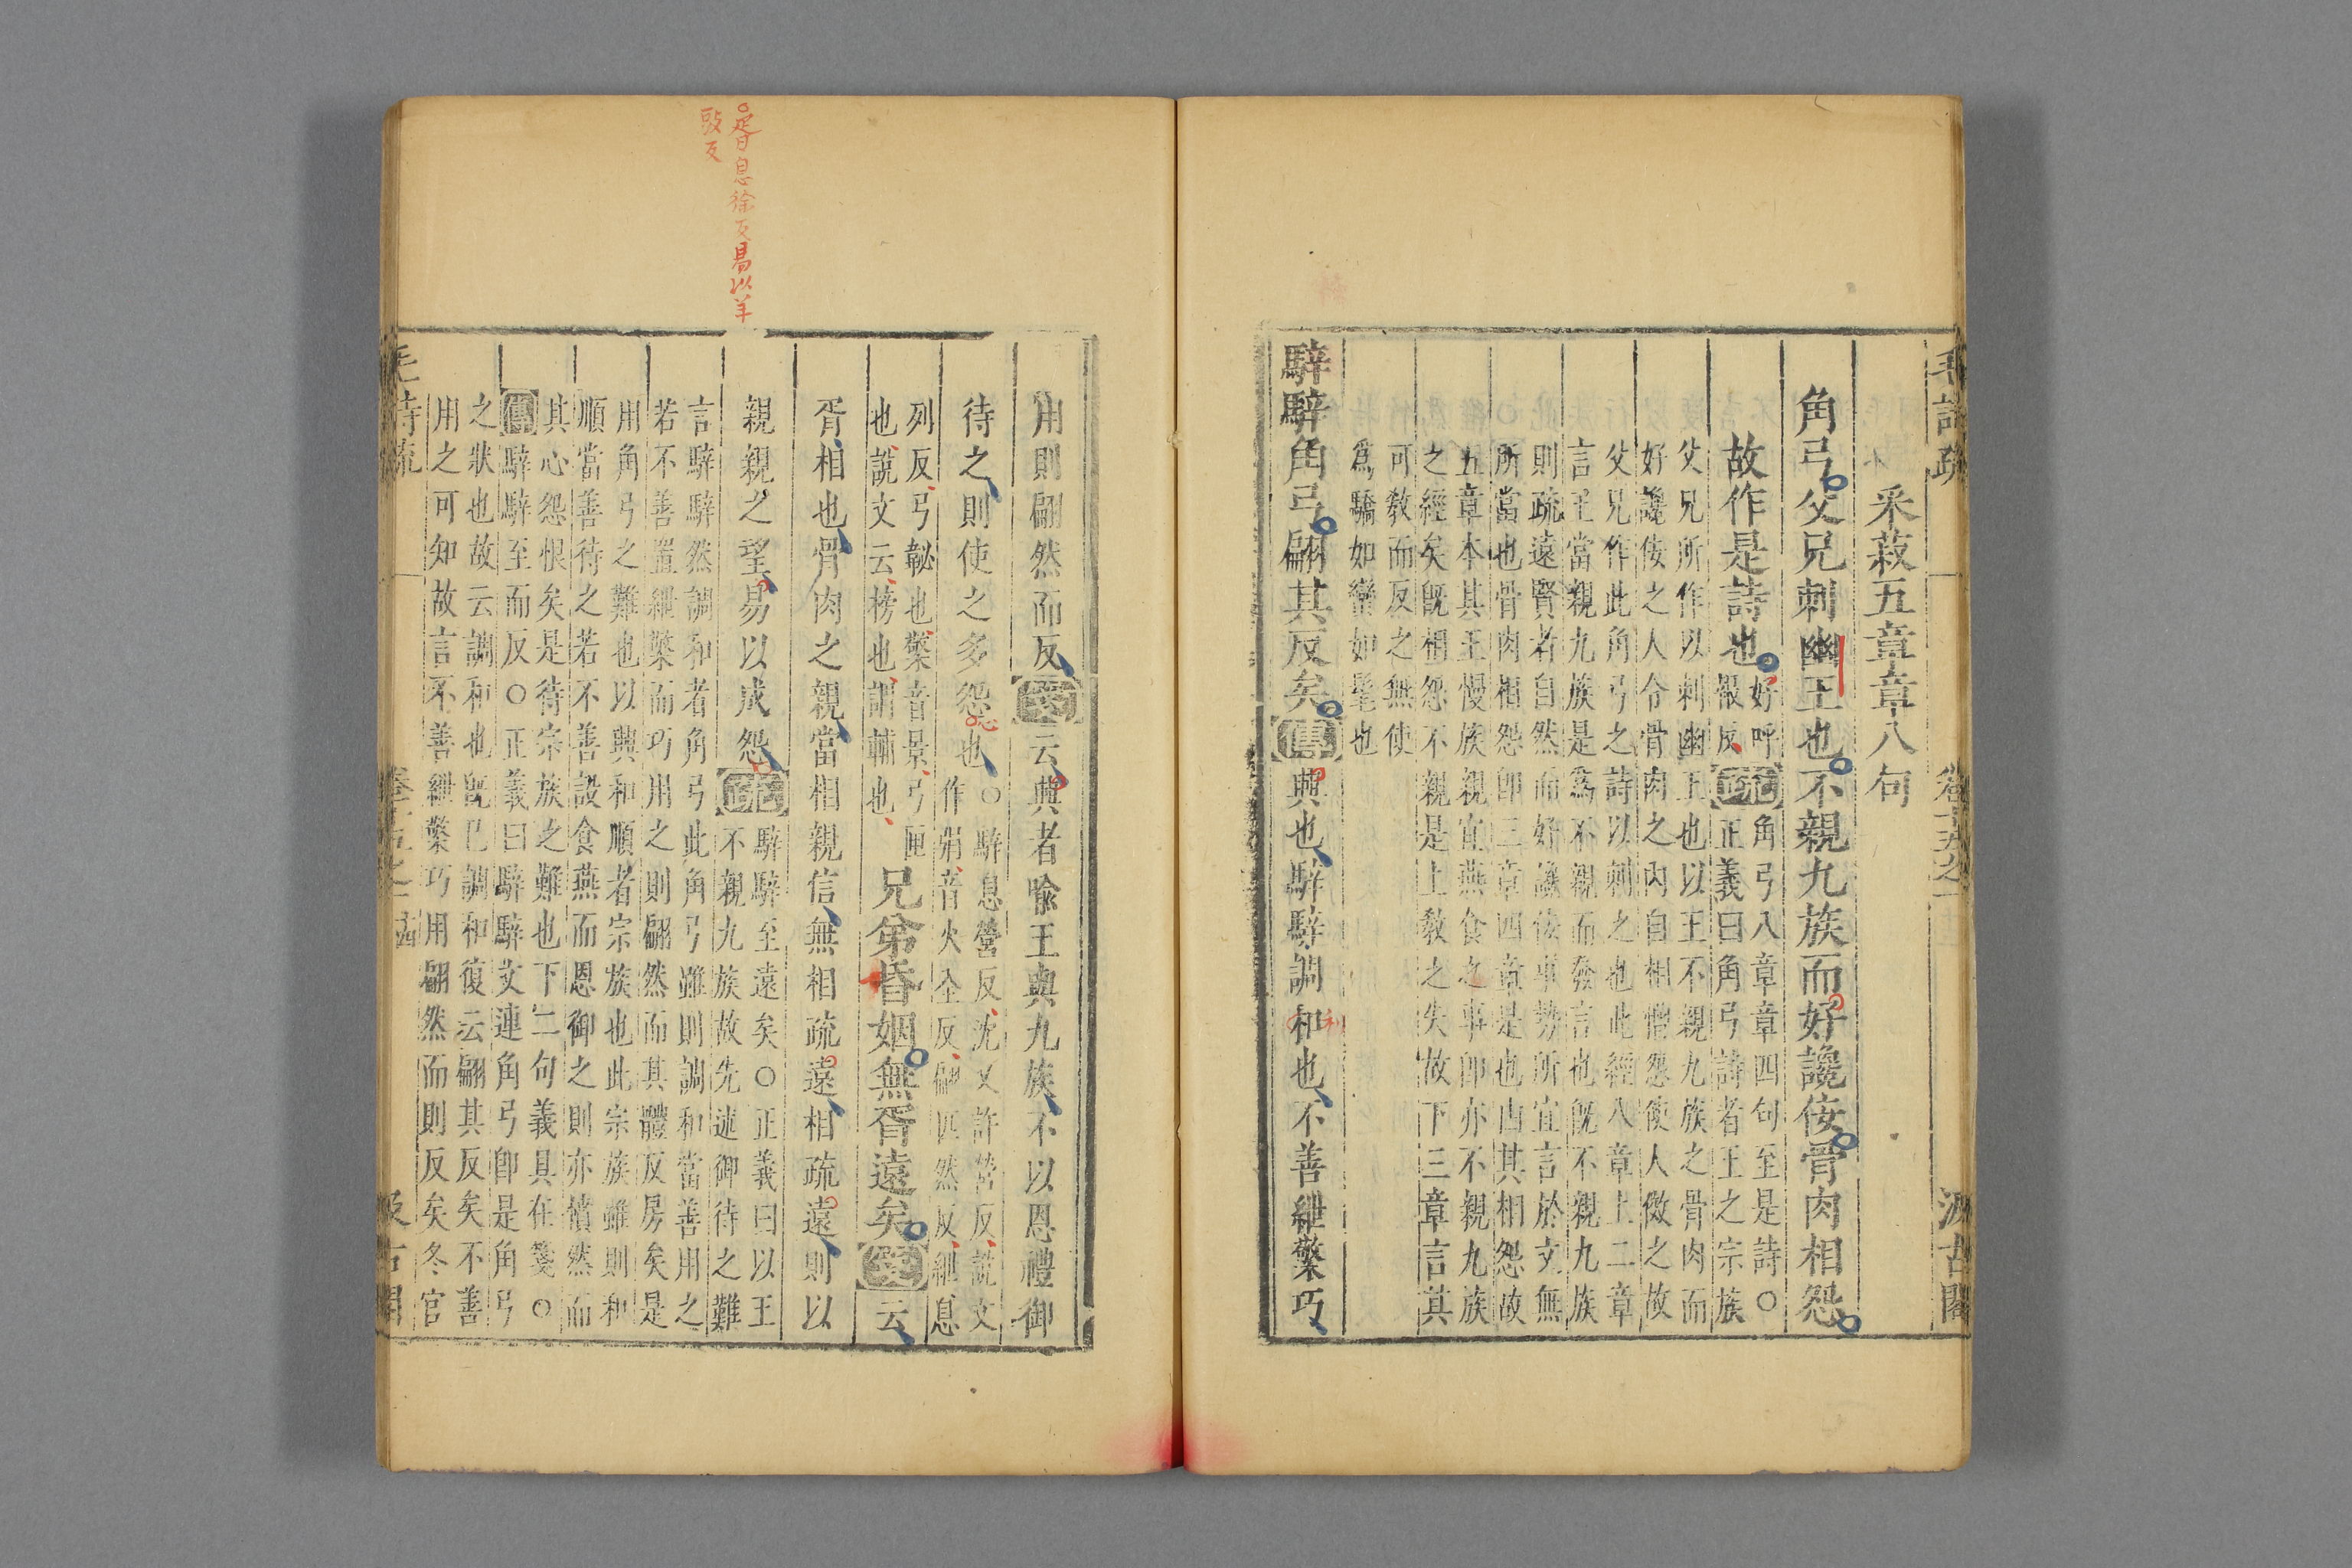 毛詩疏
卷十五之一
汲古閣
采菽五章章八句
角弓父兄刺幽王也不親九族而好讒佞骨肉相怨
故作是詩也
好呼
報反
疏
角弓八章章四句至是詩○
正義曰角弓詩者王之宗族
父兄所作以刺幽王也以王不親九族之骨肉而
好讒佞之人令骨肉之內自相憎怨使人傚之故
父兄作此角弓之詩以刺之也此經八章上二章
言王當親九族是爲不親而發言也旣不親九族
則疏遠賢者自然而好讒佞事勢所宜言於文無
所當也骨肉相怨卽三章四章是也由其相怨故
五章本其王慢族親宜燕食之事卽亦不親九族
之經矣旣相怨不親是上敎之失故下三章言其
可敎而反之無使
爲驕如蠻如髦也
騂騂角弓翩其反矣
傳
興也騂騂調和也不善紲檠巧
用則翩然而反
箋
云興者喻王與九族不以恩禮御
待之則使之多怨也
○騂息營反沈又許營反說文
作弲音火全反翩匹然反紲息
列反弓䪐也檠音景弓匣
也說文云榜也謂輔也
兄弟昏姻無胥遠矣
箋
云
胥相也骨肉之親當相親信無相疏遠相疏遠則以
親親之望易以成怨
疏
騂騂至遠矣○正義曰以王
不親九族故先述御待之難
言騂騂然調和者角弓此角弓雖則調和當善用之
若不善置紲檠而巧用之則翩然而其體反房矣是
用角弓之難也以興和順者宗族也此宗族雖則和
順當善待之若不善設食燕而恩御之則亦憤然而
其心怨恨矣是待宗族之難也下二句義具在箋○
傳
騂騂至而反○正義曰騂騂文連角弓卽是角弓
之狀也故云調和也旣巳調和復云翩其反矣不善
用之可知故言不善紲檠巧用翩然而則反矣冬官
毛詩疏
卷十五之一
汲古閣
○胥息徐反易以羊
豉反